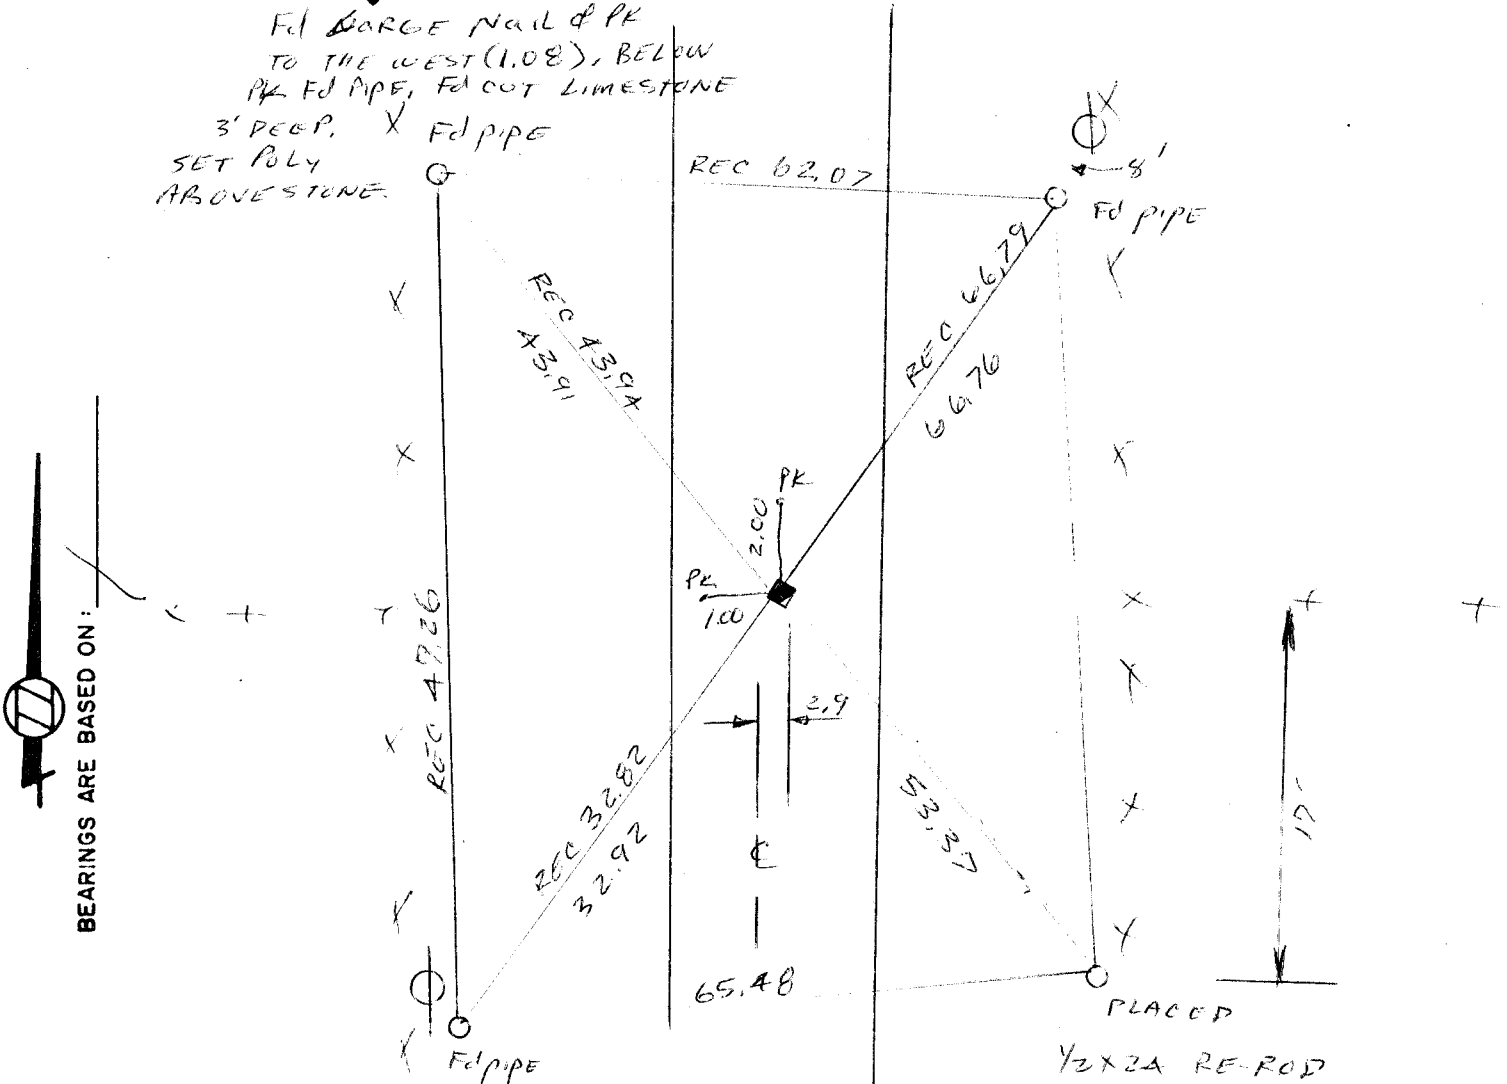 Fd LARGE NAIL & PK
TO THE WEST (1.08), BELOW
PK Fd PIPE, Fd CUT LIMESTONE
3' DEEP.
SET POLY
ABOVE STONE.
X Fd pipe
REC 62.07
X
8'
Fd pipe
REC 43.94
43.91
REC 66.79
66.76
PK
2.00
PK
1.00
REC 47.26
2.9
REC 32.82
32.92
℄
53.37
17'
65.48
BEARINGS ARE BASED ON:
Fd pipe
PLACED
1/2 X 24 RE-ROD